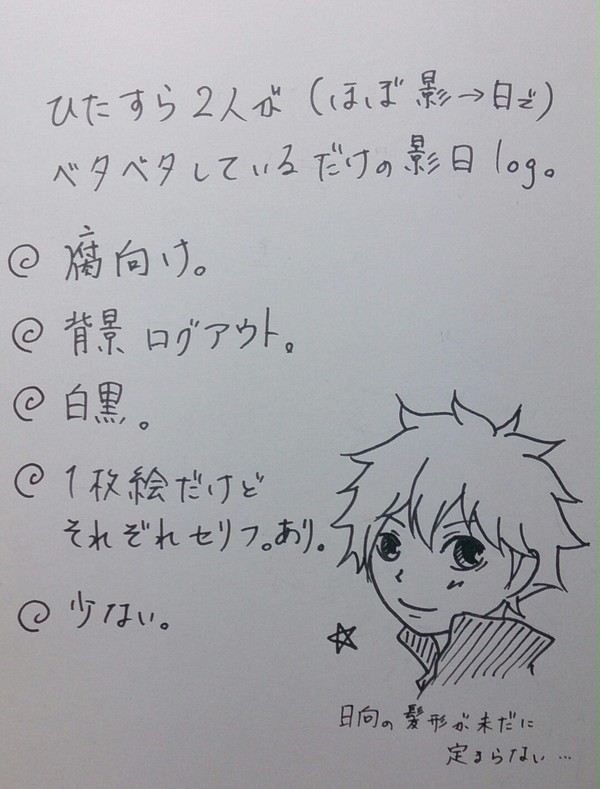 ひたすら2人が（ほぼ影→日で）
ベタベタしているだけの影日log。
@ 腐向け。
@ 背景ログアウト。
@ 白黒。
@ 1枚絵だけど
それぞれセリフ。あり。
@ 少ない。
日向の髪形が未だに
定まらない…